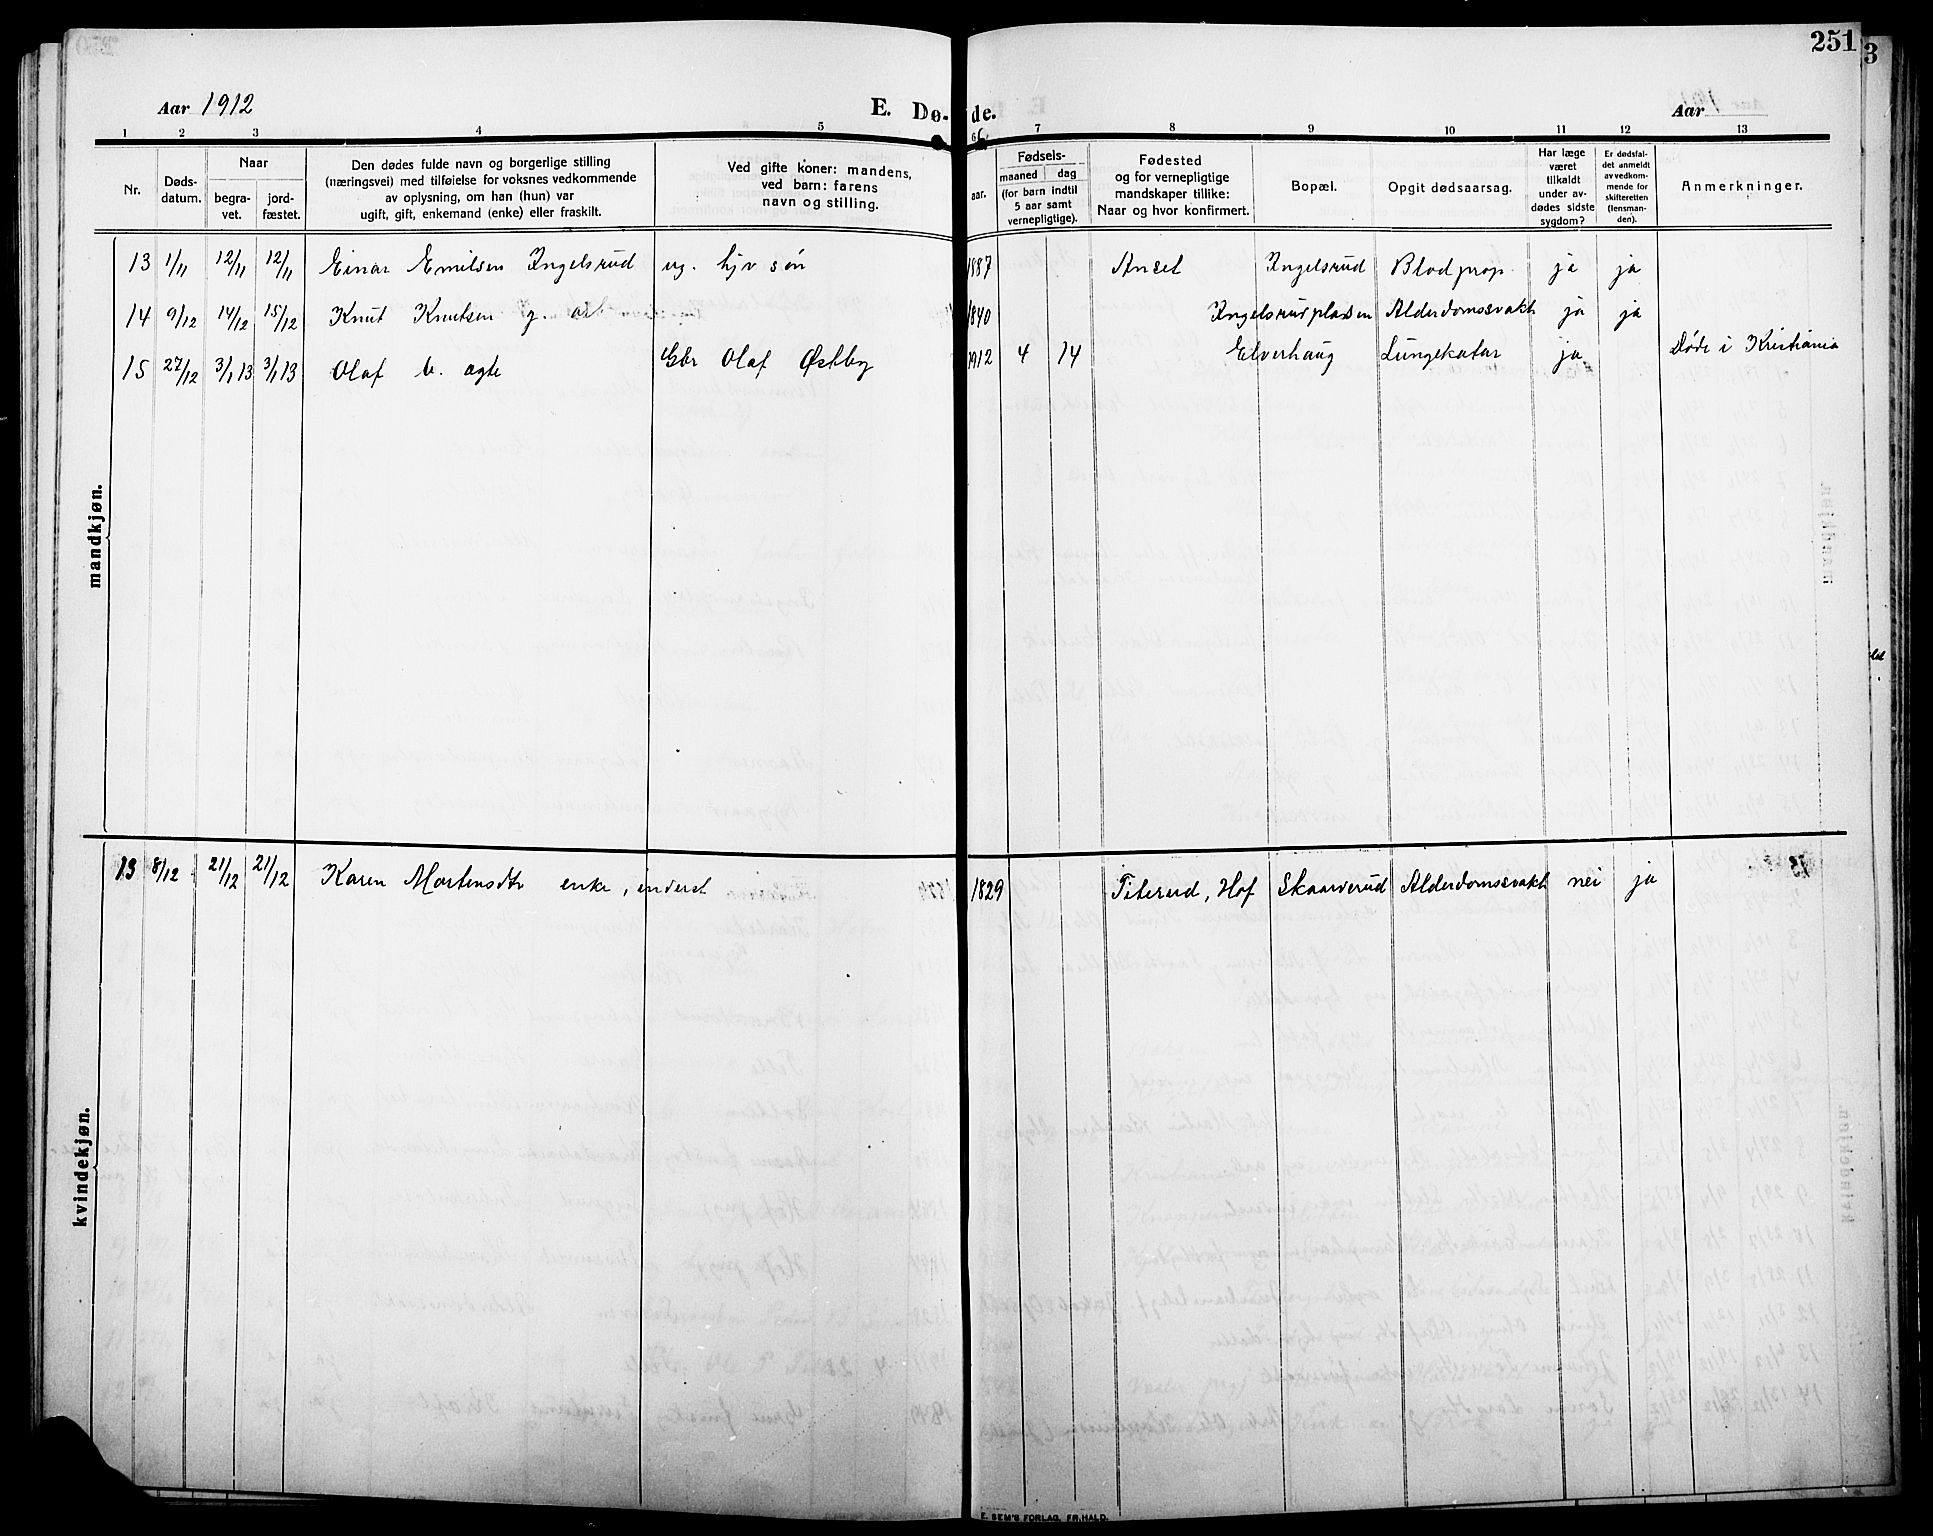 251
3
Aar 1912
E. Dø-
de.
Aar
1 2 3 4 5 6 7 8 9 10 11 12 13
Nr.
Døds-
datum.
Naar
begra-
vet.
jord-
fæstet.
Den dødes fulde navn og borgerlige stilling
(næringsvei) med tilføielse for voksnes vedkommende
av oplysning, om han (hun) var
ugift, gift, enkemand (enke) eller fraskilt.
Ved gifte koner: mandens,
ved barn: farens
navn og stilling.
Fødsels-
aar.
maaned dag
(for barn indtil
5 aar samt
vernepligtige).
Fødested
og for vernepligtige
mandskaper tillike:
Naar og hvor konfirmert.
Bopæl.
Opgit dødsaarsag.
Har læge
været
tilkaldt
under av-
dødes sidste
sygdom?
Er dødsfal-
det anmeldt
av vedkom-
mende for
skifteretten
(lensman-
den).
Anmerkninger.
mandkjøn.
13 1/11 12/11 12/11 Einar Emilsen Ingelsrud ug. hjv søn 1887 Anset Ingelsrud Blodprop. ja ja
14 9/12 14/12 15/12 Knut Knutsen g. arb 1840 Ingelsrudpladsen Alderdomssvakh ja ja
15 27/12 3/1 13 3/1 13 Olaf u. ægte Gbr Olaf Østby 1912 4 14 Elverhaug Lungekatar ja Døde i Kristiania
kvindekjøn.
13 8/12 21/12 21/12 Karen Mortensdtr enke, inderst 1829 Titerud, Hof Skaarverud Alderdomssvakh nei ja
E. SEM'S FORLAG, FR.HALD.